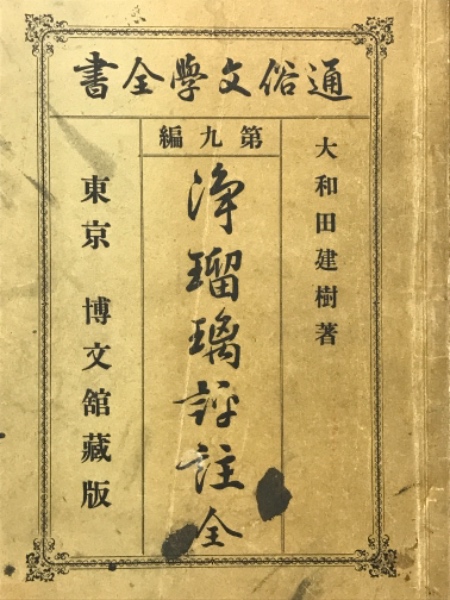 通俗文學全書
第九編
大和田建樹著
浄瑠璃評註全
東京 博文館藏版